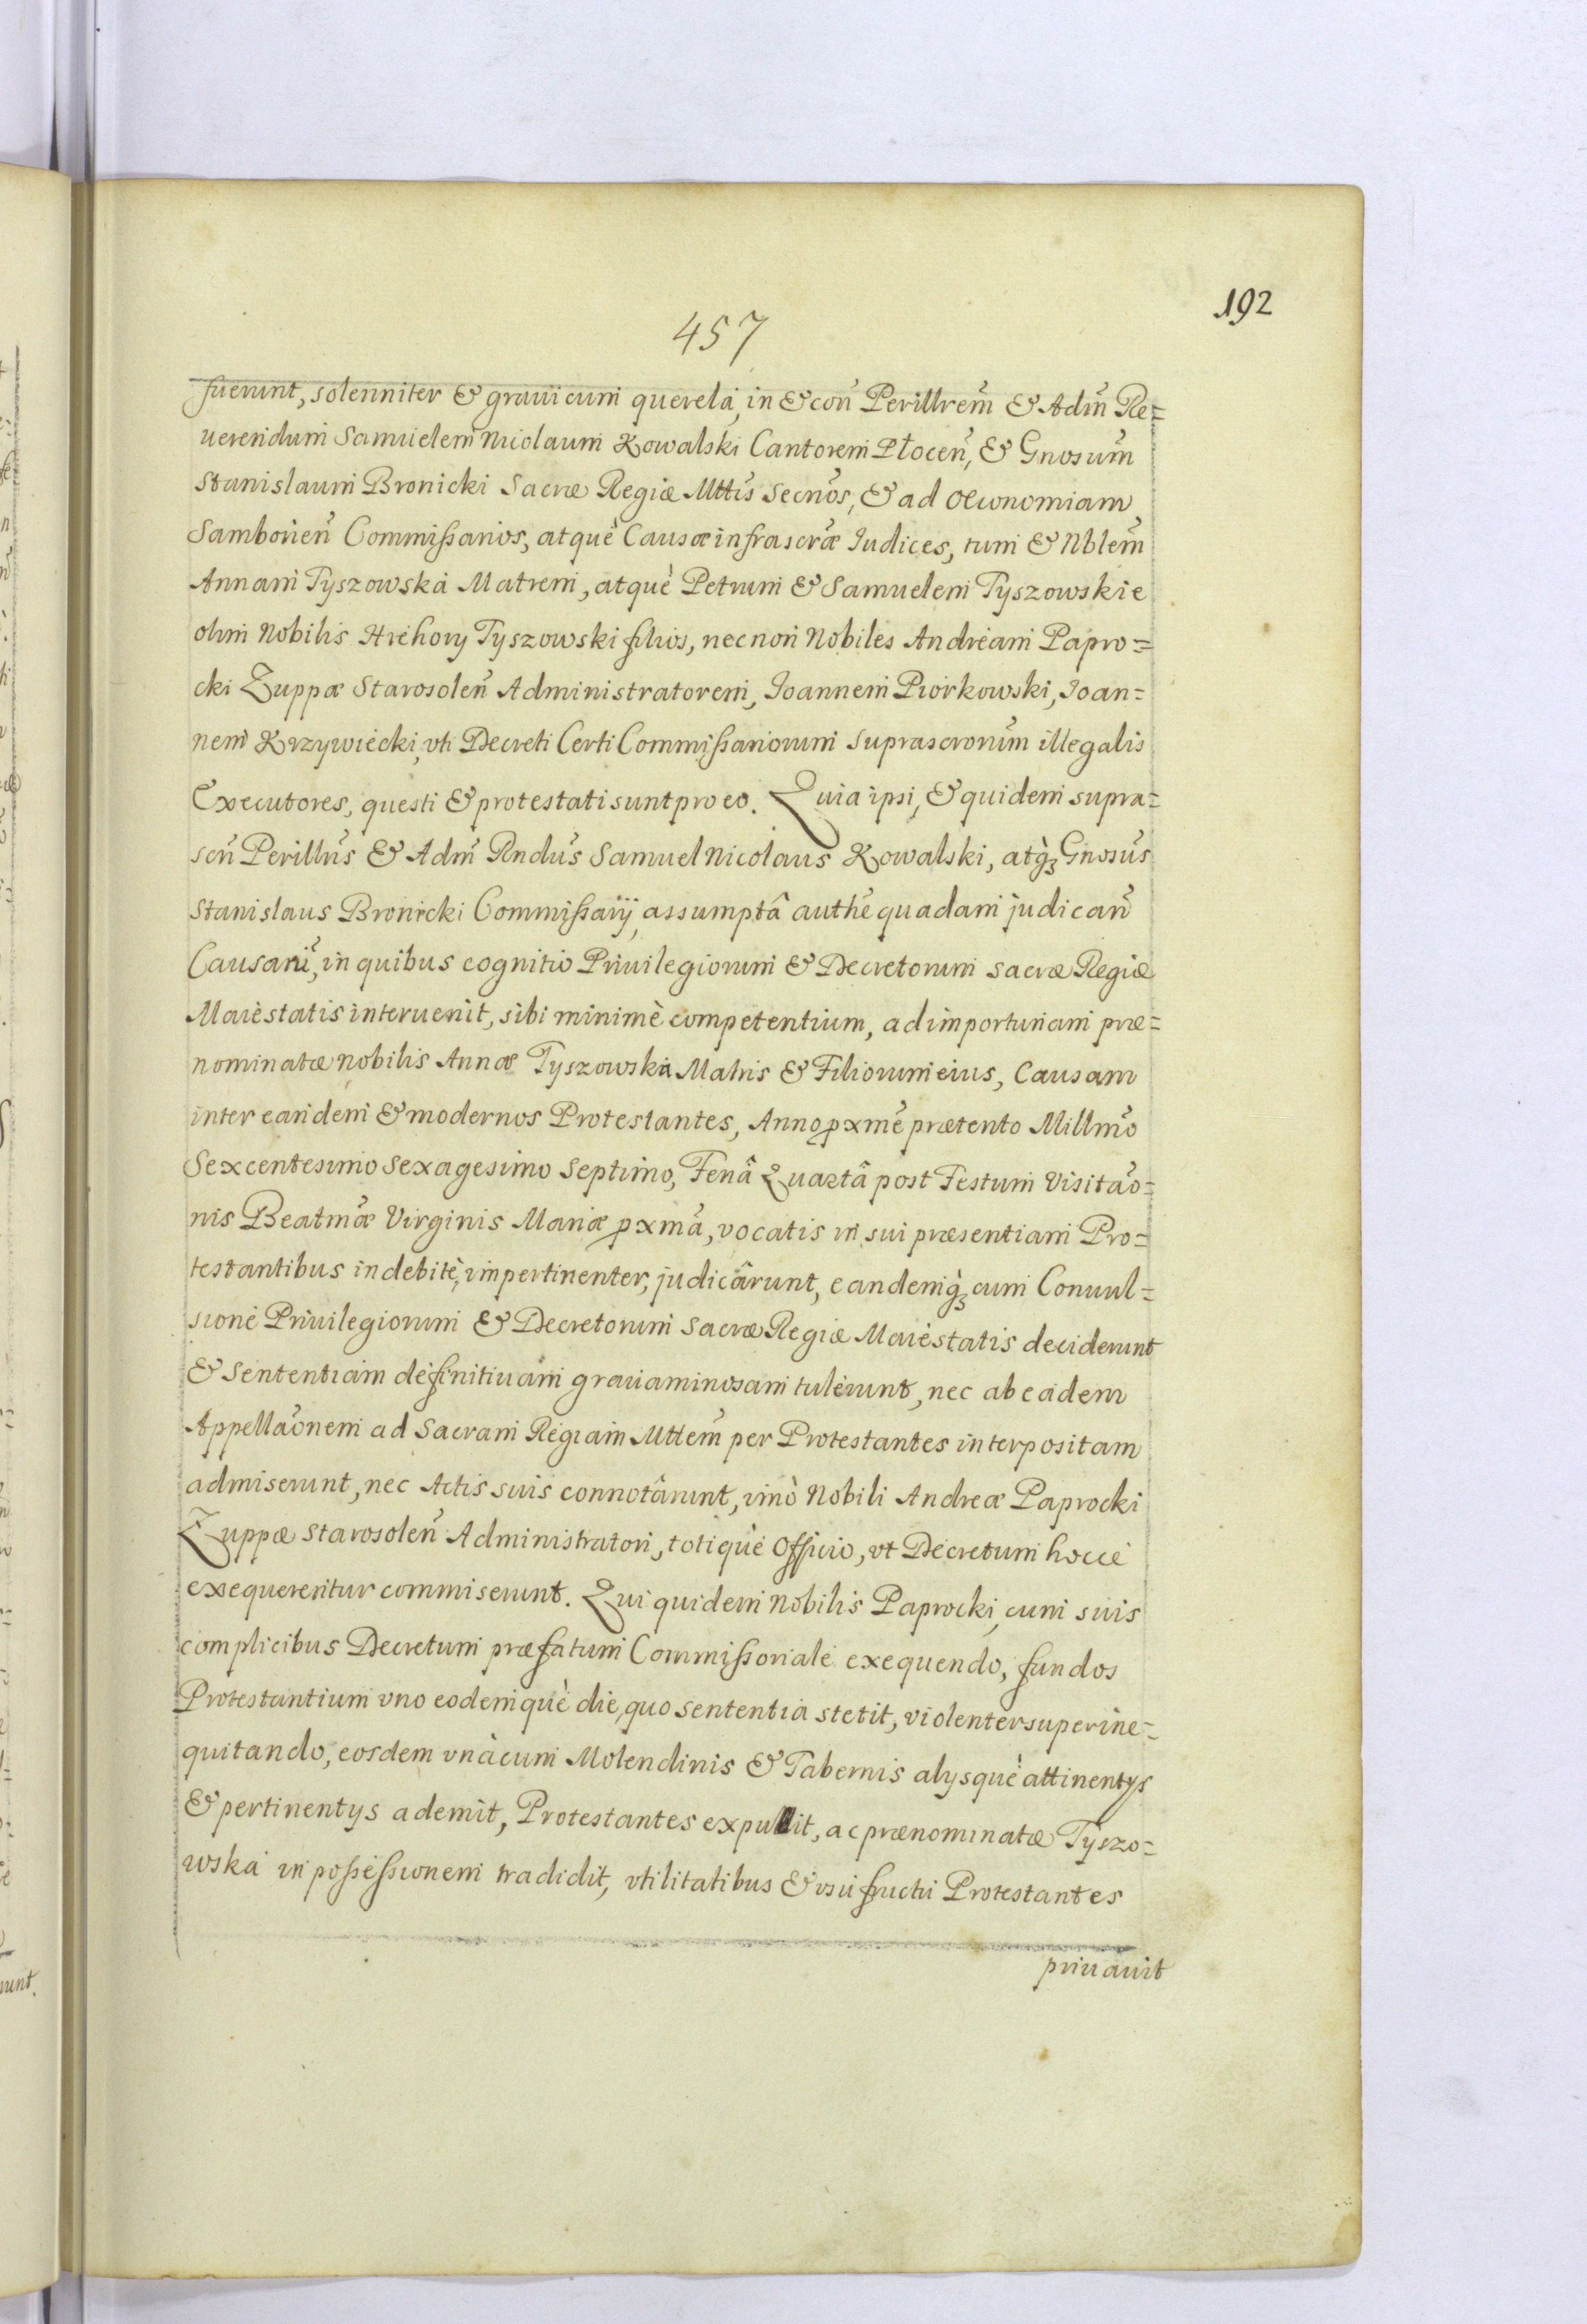 192
457
fuerunt, solenniter & graui cum querela, in & con̄ Perillrem̄ & Adm̄ Re=
uerendum Samuelem Nicolaum Kowalski Cantorem Płocen̄, & Gnosum̄
Stanislaum Bronicki Sacræ Regiæ Mttis̄ Secrios̄, & ad Oeconomiam
Samborien̄ Commissarios, atquè Causæ infrascrǣ Iudices, tum & Nblem̄
Annam Tyszowska Matrem, atquè Petrum & Samuelem Tyszowskie
olim Nobilis Hrehory Tyszowski filios, nec non Nobiles Andream Papro=
cki Zuppæ Starosolen̄ Administratorem, Joannem Piorkowski, Joan=
nem Krzywiecki, vti Decreti Certi Commissariorum suprascrorum̄ illegalis
Executores, questi & protestati sunt pro eo. Quia ipsi, & quidem supra=
scri̅ Perillris̅ & Adm̄ Rndus̄ Samuel Nicolaus Kowalski, atq̀ꝫ Gnosus̄
Stanislaus Bronicki Commissarij, assumptâ authē quadam judican̄
Causarū, in quibus cognitio Priuilegiorum & Decretorum Sacræ Regiæ
Maiestatis interuenit, sibi minimè competentium, ad importunam præ=
nominatæ nobilis Annæ Tyszowska Matris & Filiorum eius, Causam
inter eandem & modernos Protestantes, Anno pxmē prætento Millmō
Sexcentesimo Sexagesimo Septimo, Feriâ Quartâ post Festum Visitaō=
nis Beatmǣ Virginis Mariæ pxmā, vocatis in sui præsentiam Pro=
testantibus indebitè, impertinenter, judicârunt, eandemq̀ꝫ cum Conuul=
sione Priuilegiorum & Decretorum Sacræ Regiæ Maiestatis deciderunt
& Sententiam definitiuam grauaminosam tulerunt, nec ab eadem
Appellaōnem ad Sacram Regiam Mttem̄ per Protestantes interpositam
admiserunt, nec Actis suis connotârunt, imò Nobili Andreæ Paprocki
Zuppæ Starosolen̄ Administratori, totiquè Officio, vt Decretum hocce
exequerentur commiserunt. Qui quidem Nobilis Paprocki, cum suis
complicibus Decretum præfatum Commissoriale exequendo, fundos
Protestantium vno eodemquè die, quo sententia stetit, violenter superine=
quitando, eosdem vnàcum Molendinis & Tabernis alysquè attinentys
& pertinentys ademit, Protestantes expulit, ac prænominatæ Tyszo=
wska in possessionem tradidit, vtilitatibus & vsufructu Protestantes
priuauit